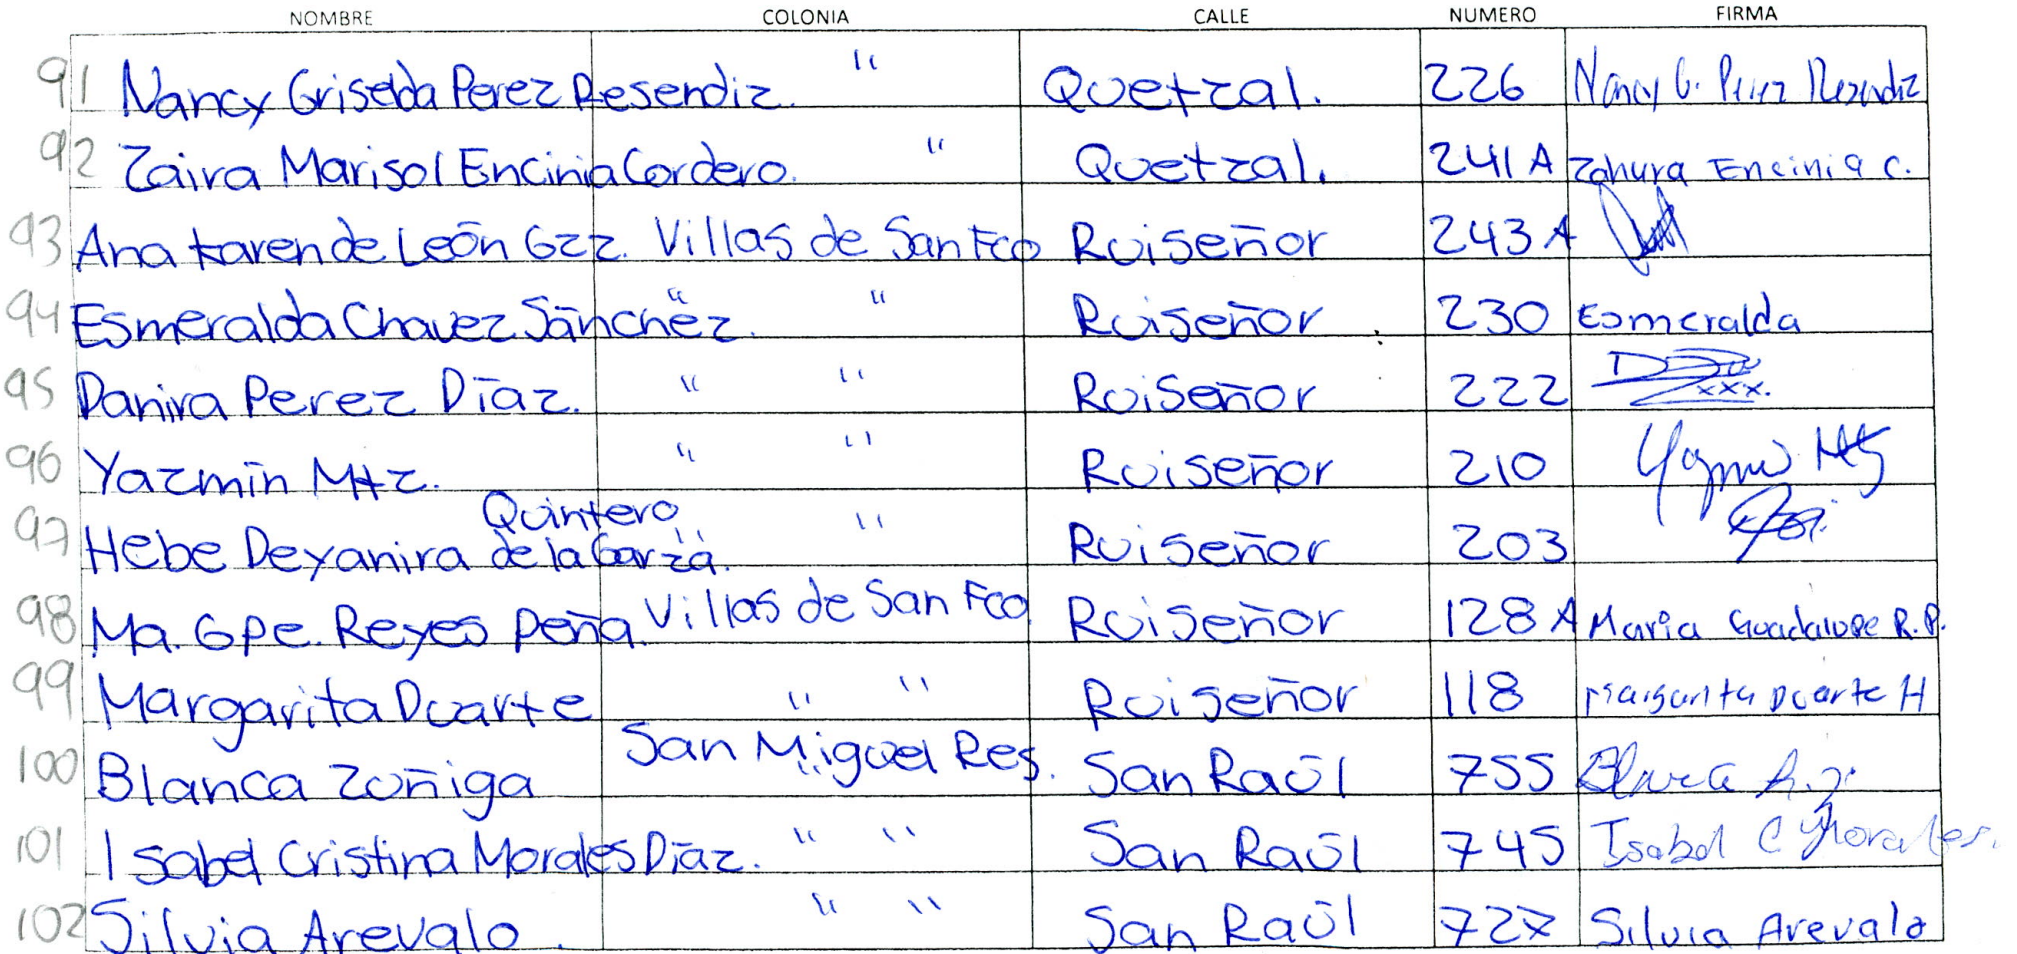 NOMBRE COLONIA CALLE NUMERO FIRMA
91 Nancy Griselda Perez Resendiz. " Quetzal. 226 Nancy G. Perez Resendiz
92 Zaira Marisol Encinia Cordero. " Quetzal. 241 A Zahyra Encinia C.
93 Ana Karen de León Gzz. Villas de San Fco Ruiseñor 243 A
94 Esmeralda Chavez Sánchez. " " Ruiseñor 230 Esmeralda
95 Danira Perez Díaz. " " Ruiseñor 222
96 Yazmín Mtz. " " Ruiseñor 210 Yazmin Mtz
97 Hebe Deyanira Quintero de la Garza. " " Ruiseñor 203
98 Ma. Gpe. Reyes Peña. Villas de San Fco Ruiseñor 128 A Maria Guadalupe R.P.
99 Margarita Duarte " " Ruiseñor 118 Margarita Duarte H
100 Blanca Zúñiga San Miguel Res. San Raúl 755 Blanca
101 Isabel Cristina Morales Díaz. " " San Raúl 745 Isabel C Morales.
102 Silvia Arevalo. " " San Raúl 727 Silvia Arevalo